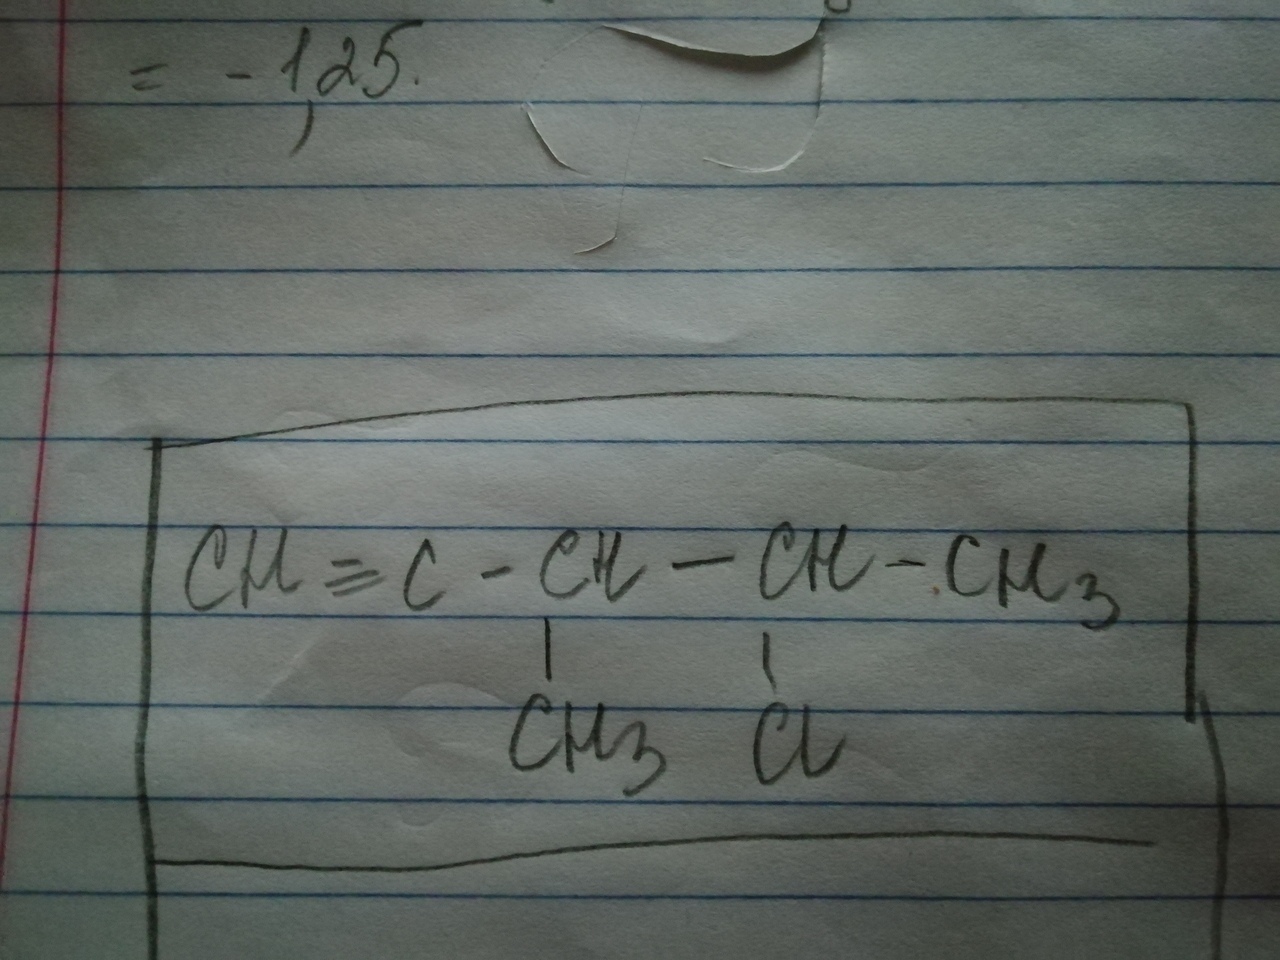 = -1,25.
CH≡C-CH-CH-CH3
| |
CH3 Cl